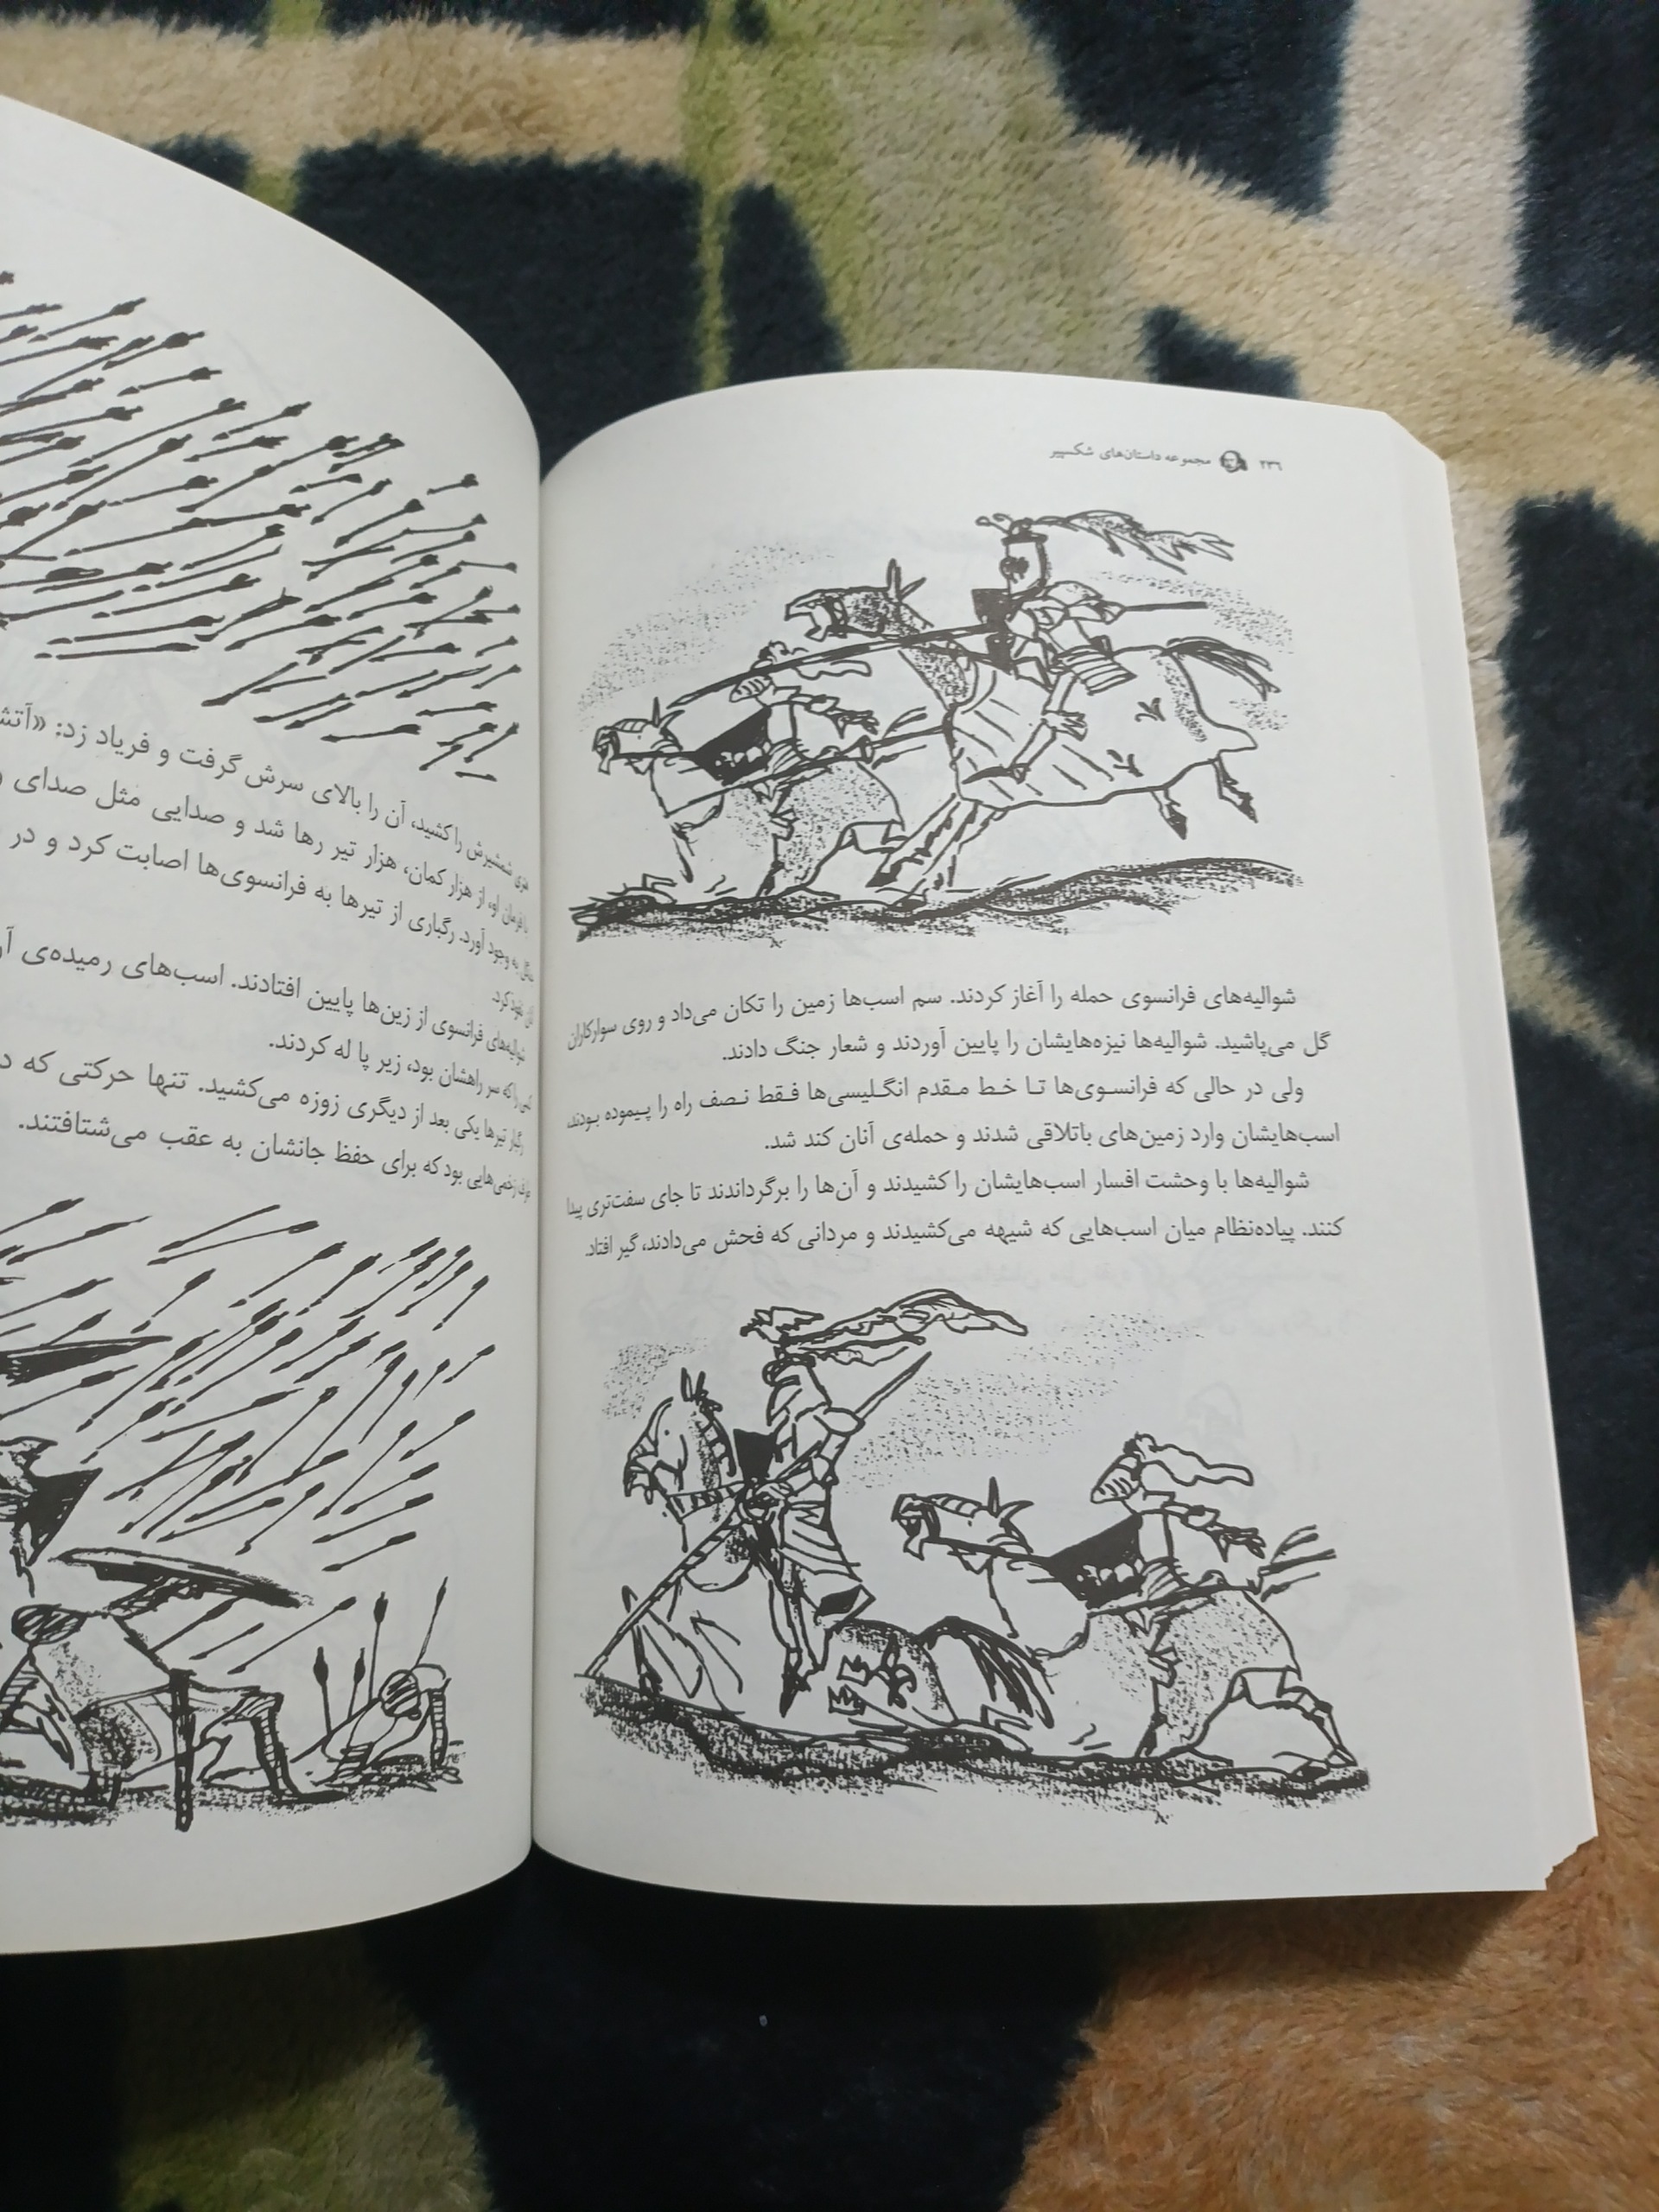 ۲۳۶ مجموعه داستان‌های شکسپیر
شوالیه‌های فرانسوی حمله را آغاز کردند. سم اسب‌ها زمین را تکان می‌داد و روی سوارکاران
گل می‌پاشید. شوالیه‌ها نیزه‌هایشان را پایین آوردند و شعار جنگ دادند.
ولی در حالی که فرانسوی‌ها تا خط مقدم انگلیسی‌ها فقط نصف راه را پیموده بودند،
اسب‌هایشان وارد زمین‌های باتلاقی شدند و حمله‌ی آنان کند شد.
شوالیه‌ها با وحشت افسار اسب‌هایشان را کشیدند و آن‌ها را برگرداندند تا جای سفت‌تری پیدا
کنند. پیاده‌نظام میان اسب‌هایی که شیهه می‌کشیدند و مردانی که فحش می‌دادند، گیر افتاد.
شمشیرش را کشید، آن را بالای سرش گرفت و فریاد زد: «آتش
او، از هزار کمان، هزار تیر رها شد و صدایی مثل صدای
به وجود آورد. رگباری از تیرها به فرانسوی‌ها اصابت کرد و در
نفوذ کرد.
شوالیه‌های فرانسوی از زین‌ها پایین افتادند. اسب‌های رمیده‌ی
را که سر راهشان بود، زیر پا له کردند.
رگبار تیرها یکی بعد از دیگری زوزه می‌کشید. تنها حرکتی که
زخمی‌هایی بود که برای حفظ جانشان به عقب می‌شتافتند.